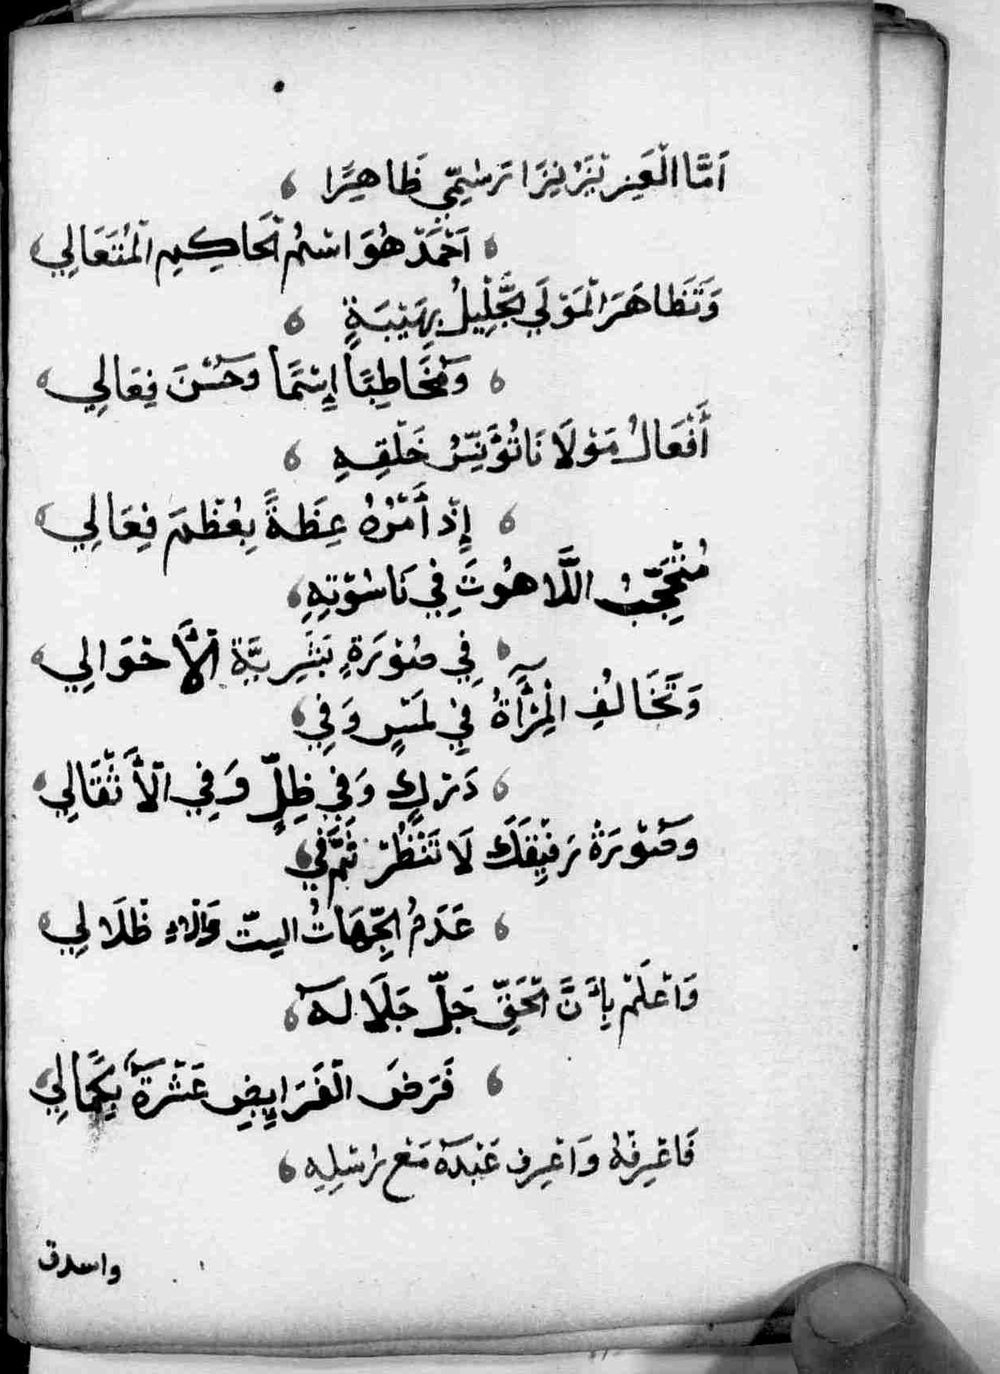 اَمَّا الْعَزِيْزُ نِزَا تَرَسْمِّي ظَاهِرًا
اَحْمَدْ هُوَ اسْمُ الْحَاكِمِ الْمُتَعَالِي
وَتَظَاهَرَ الْمَوْلَي الْجَّلِيْلُ بِهَيْبَةٍ
وَمُخَاطِبًا إِسْمًا وَحُسْنَ فِعَالِي
أَفْعَالُ مَوْلَانَا تُؤَنِّسُ خَلْقِهِ
إِذْ أَمْرُهُ عِظَةً بِعُظْمَ فِعَالِي
مُتْحَجِّبُ اللَّاهُوتَ فِي نَاسُوْتِهِ
فِي صُوْرَةِ بَشَرِيَّةِ الْأَحْوَالِي
وَتَخَالُفِ الْمِرْآةُ فِي لَمْسٍ وَفِي
دَرْكٍ وَفِي ظِلٍّ وَفِي الْأَثْقَالِي
وَصُوْرَةْ رَفِيْقَكَ لَا تَنْظُرْ ثَمَّ فِي
عَدَمُ الْجِّهَاتُ السِتّ ظَلَالِي
وَاعْلَمْ بِأَنَّ الْحَقِّ جَلّ جَلَالَهُ
فَرَضَ الْفَرَايِضِ عَشْرَةً بِكَمَالِي
فَاعْرِفْهُ وَاعْرِفْ عَبْدَهُ مَعْ رُسْلِهِ
واصدق